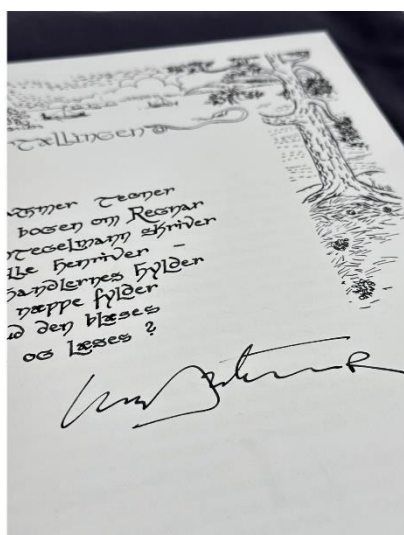 tællingen
tegner
bogen om Regnar
tegelmann skriver
lle henriver –
handlernes hylder
næppe fylder
ud den blæses
og læses ?